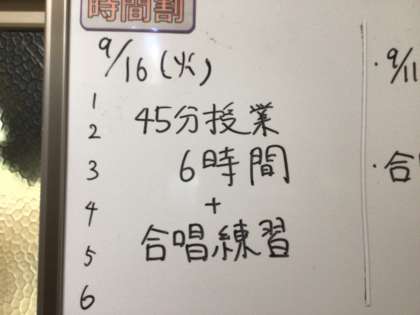 時間割
9/16(火)
1
2 45分授業
3 6時間
4 +
5 合唱練習
6
・9/11
・合